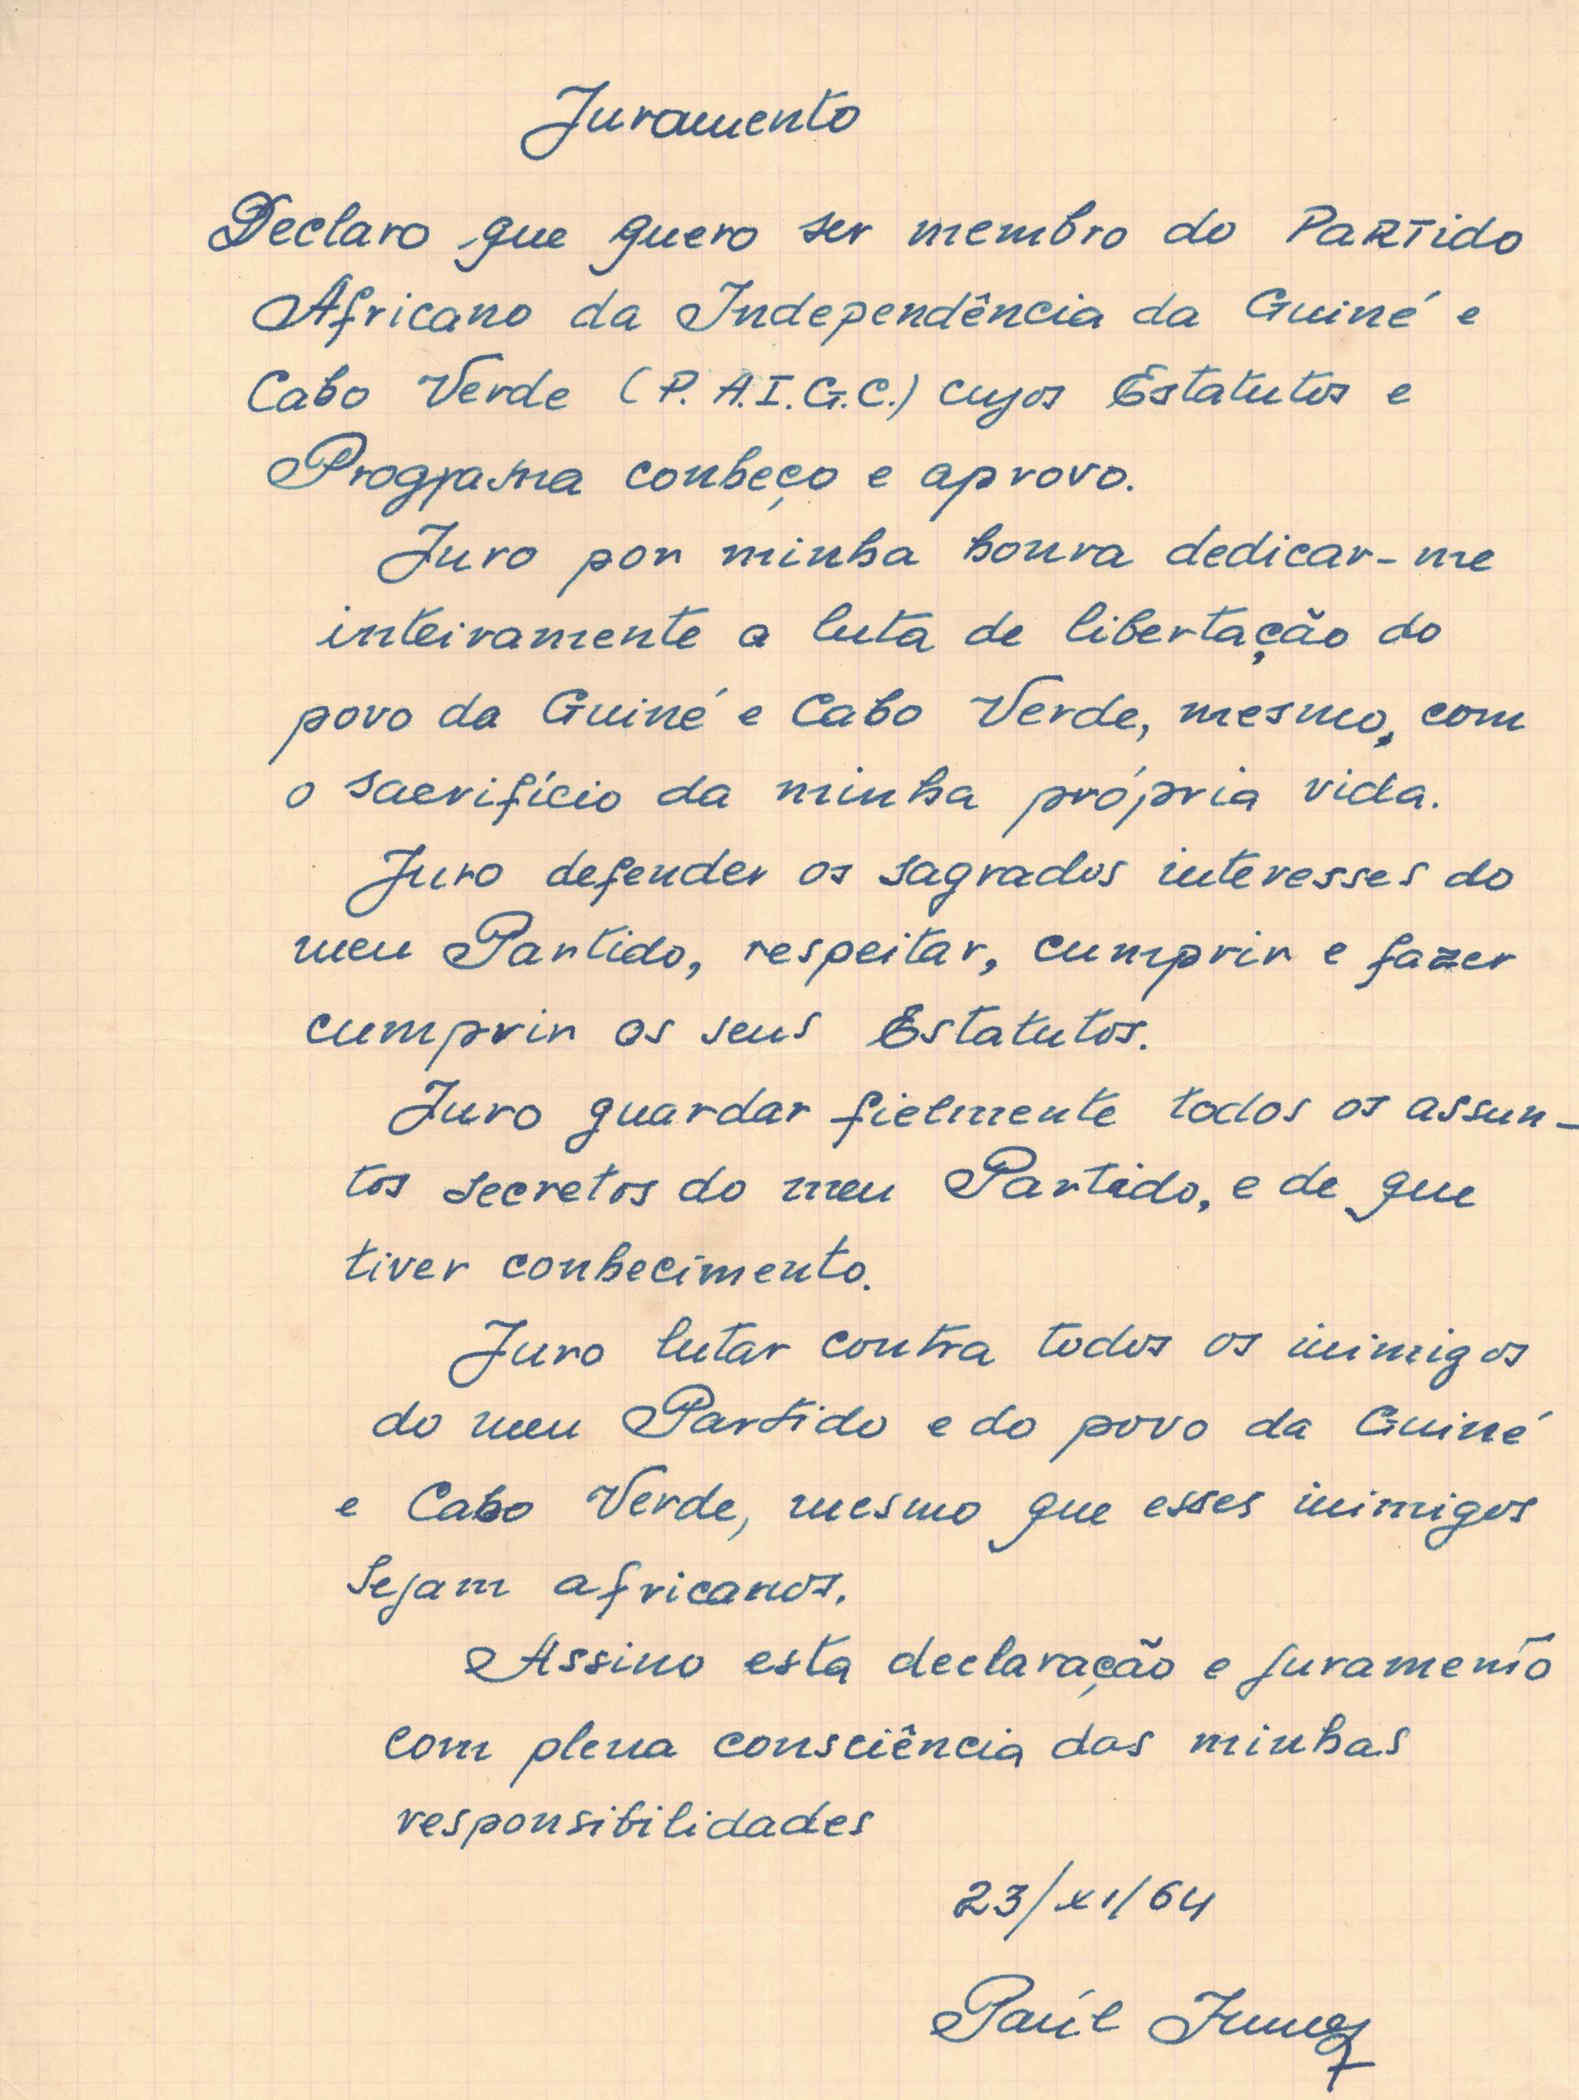 Juramento
Declaro que quero ser membro do PaRTido
Africano da Independência da Guiné e
Cabo Verde (P.A.I.G.C.) cujos Estatutos e
Programa conheço e aprovo.
Juro por minha honra dedicar-me
inteiramente a luta de libertação do
povo da Guiné e Cabo Verde, mesmo, com
o sacrifício da minha própria vida.
Juro defender os sagrados interesses do
meu Partido, respeitar, cumprir e fazer
cumprir os seus Estatutos.
Juro guardar fielmente todos os assun-
tos secretos do meu Partido, e de que
tiver conhecimento.
Juro lutar contra todos os inimigos
do meu Partido e do povo da Guiné
e Cabo Verde, mesmo que esses inimigos
sejam africanos.
Assino esta declaração e juramento
com plena consciência das minhas
responsibilidades
23/XI/64
Paúl